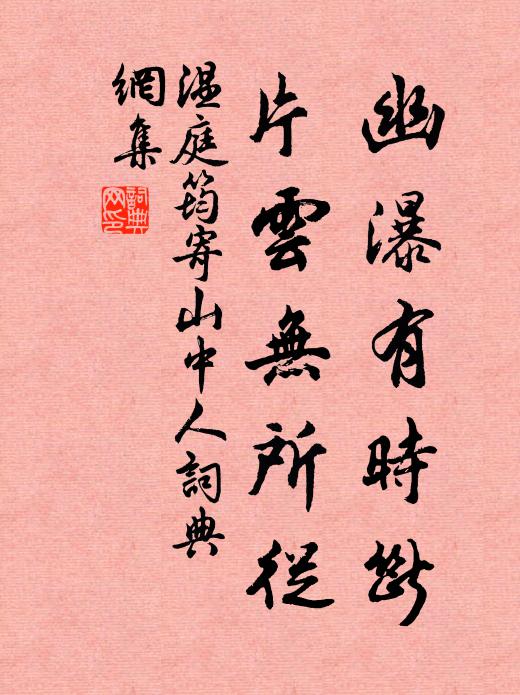 幽瀑有時斷
片雲無所從
温庭筠寄山中人詞典
網集
詞典網印